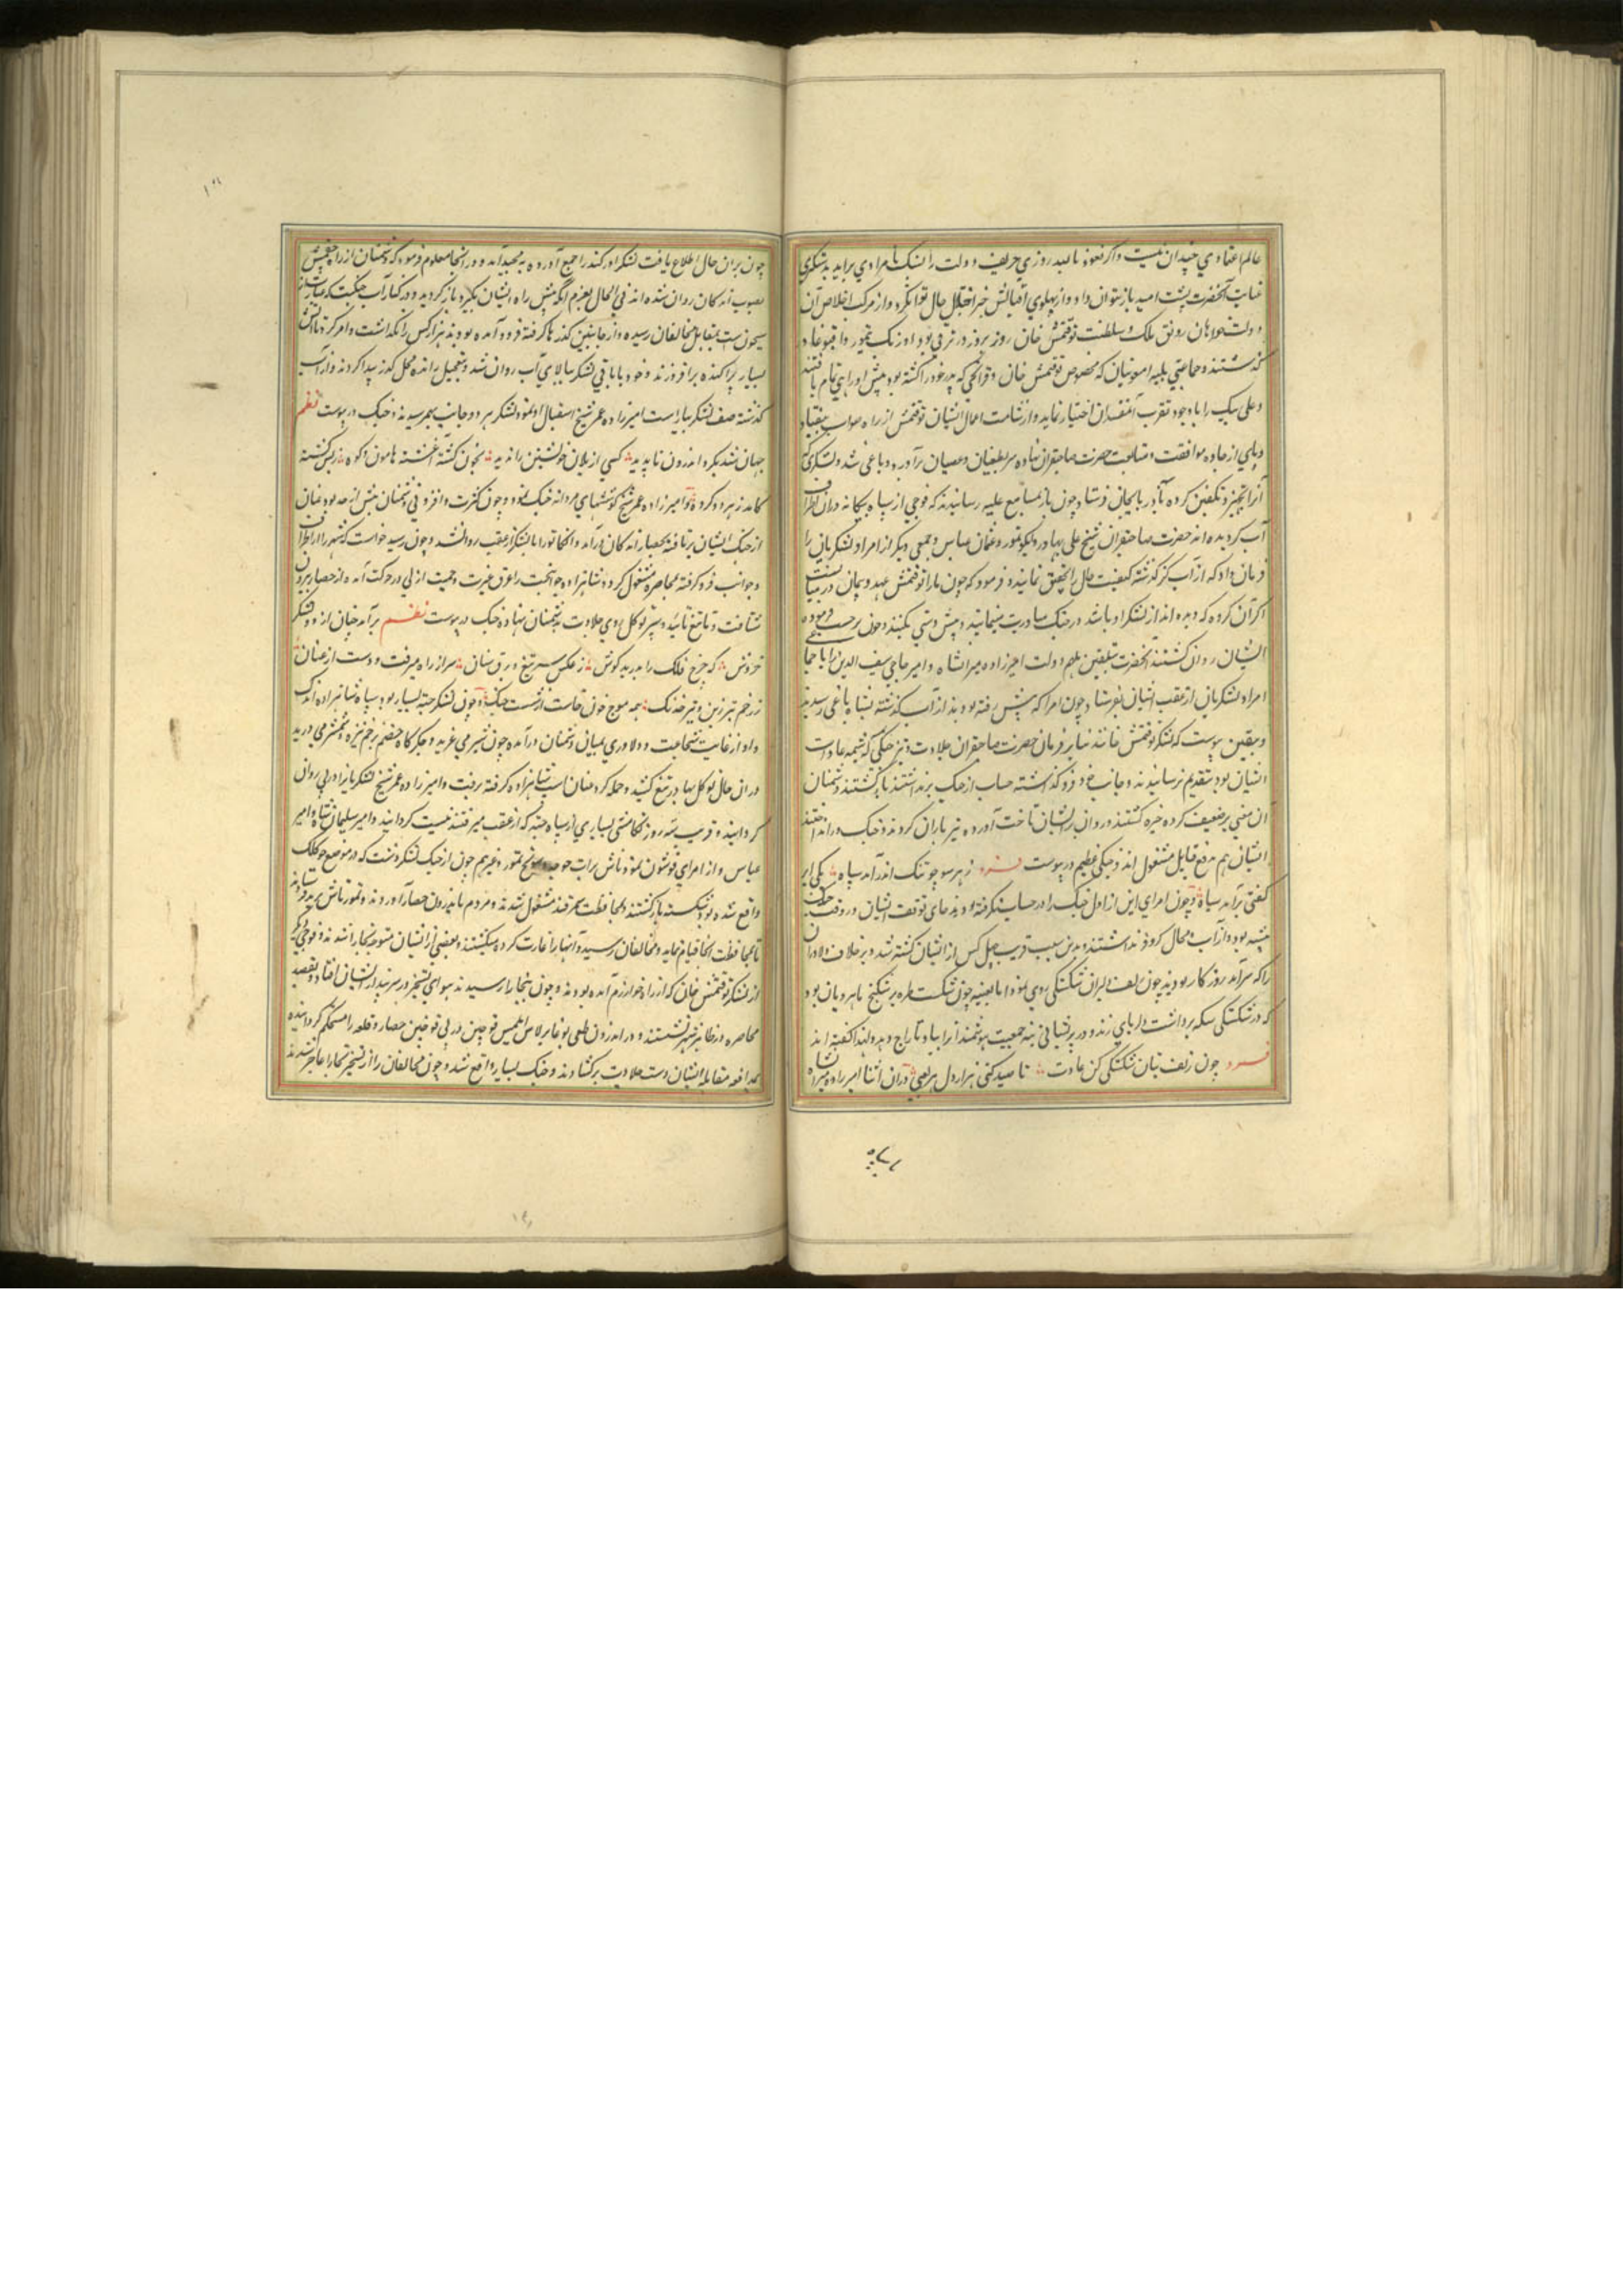 عالم اعتمادی چندان نیست و اگر نعوذ بالله روزی حریف دولت را سنگ نامرادی برآید بدستگیری
عنایت آنحضرت پشت امید باز توان داد و از پهلوی اقبالش خبر اختلال حال توان کرد و از مرکب اخلاص آن
دولت خواهان رونق ملک و سلطنت توقتمش خان روز بروز در ترقی بود اورنک تیمور و اقبوغا در
گذشتند و جماعتی بلیه امعونیان که بخصوص توقتمش خان و قزانچی که پدر خود را کشته بود پیش او راهی تمام یافتند
و علی بیک را با وجود تقرب آنمفسدان اختیار نماند و از شامت اعمال ایشان توقتمش از راه صواب بیفتاد
و پای از جاده موافقت و متابعت حضرت صاحبقران نهاده سر بطغیان و عصیان برآورد و یاغی شد و لشکری که
آنرا تجهیز و تکفین کرده بآذربایجان فرستاد چون باز بمسامع علیه رسانیدند که فوجی از سپاه بیگانه در آن اطراف
آب گردیده اند حضرت صاحبقران شیخ علی بهادر و ایکو تیمور و عثمان عباس و جمعی دیگر از امرا و لشکریان را
فرمان داد که از آب کر گذشته کیفیت حال را تحقیق نمایند و فرمود که چون ما را با توقتمش عهد و پیمان در میانست
اگر آن گروه که دیده اند از لشکر او باشد در جنگ مبادرت منمائید و پیش دستی مکنید و چون برحسب فرموده
ایشان روان گشتند آنحضرت بتلقین ملهم دولت امیرزاده میرانشاه و امیر حاجی سیف الدین را با جماعتی
امرا و لشکریان از عقب ایشان بفرستاد و چون امرا که پیش رفته بودند از آب گذشته بسپاه یاغی رسیدند
و بیقین پیوست که لشکر توقتمش خانند بنابر فرمان حضرت صاحبقران جلادت و تیز جنگی که شیمه عادت
ایشان بود بتقدیم نرسانیدند و جانب خود فرو گذاشته حساب از جنگ برنداشتند بازگشتند دشمنان
آن معنی بر ضعف کرده خیره گشتند و روان بر ایشان تاخت آورده تیرباران کردند و جنگ درانداختند
ایشان هم بدفع قابل مشغول اند و جنگی عظیم در پیوست فرد ز هر سو چو تنگ اندر آمد سپاه یکی ابر
گفتی برآمد سیاه و چون امرای این از اول جنگ را در حساب نگرفته بودند جای توقف ایشان در وقت جنگ
بیشه بود و از آب و محال کر و فر نداشتند و بدین سبب قریب چهل کس از ایشان کشته شد و بر خلاف دلاوران
را که سرآمد روزگار بودند چون زلف دلبران شکستگی روی نمود اما بعینه چون شکست طره پر شکنج ماهرویان بود
که در شکستگی سکه برداشت دلربای زند و در پریشانی بنه جمعیت هوشمندان را بباد تاراج دهد و لهذا گفته اند
فرد چون زلف بتان شکستگی کن عادت تا صید کنی هزار دل هر نفسی در آن اثنا امیرزاده میرانشاه
چون بر آن حال اطلاع یافت لشکر اورکند را جمع آورده بخجند آمد و در آنجا معلوم فرمود که دشمنان از راه چقمیش
بصوب اندکان روان شده اند فی الحال بعزم آنکه پیش راه ایشان بگیرد باز گردید و در کنار آب جنگت که عبارت از
سیحون است بمقابل مخالفان رسیده و از جانبین گذرها گرفته فرود آمده بودند هزار کس را نگداشت و امر کرد تا آتش
بسیار پراکنده برافروزند و خود با باقی لشکر ببالای آب روان شد و بتعجیل رانده محل گذر پیدا کردند و از آب
گذشته صف لشکر بیاراست امیرزاده عمر شیخ استقبال او نمود و لشکر هر دو جانب بهم رسیدند و جنگ در پیوست نظم
جهان شد بگرد اندرون ناپدید کسی از یلان خویشتن را ندید بخون کشته آغشته هامون و کوه ز بس کشته
کامد ز هر دو گروه و امیرزاده عمر شیخ کوششهای مردانه جنگ نمود و چون کثرت و افزونی دشمنان بیش از حد بود عنان
از جنگ ایشان برتافته بحصار اندکان درآمد و انکا تورا با لشکر از عقب روانشد و چون رسید خواست که شهر را از اطراف
و جوانب فرو گرفته بمحاصره مشغول گردد شاهزاده جوانبخت را عرق غیرت و حمیت ازلی در حرکت آمده از حصار بیرون
شتافت و با تیغ تائید و سپر توکل روی جلادت بدشمنان نهاده جنگ در پیوست نظم برآمد چنان از دو لشکر
خروش که چرخ فلک را بدرید گوش ز عکس سر تیغ و برق سنان سر از راه میرفت و دست از عنان
ز زخم تبرزین و تیر خدنگ همه موج خون خاست از دشت جنگ و چون لشکر جته بسیار بود و سپاه شاهزاده اندک
و او از غایت شجاعت و دلاوری بمیان دشمنان درآمده چون شیر می غرید و جگرگاه خصم بزخم نیزه و شمشیر می درید
در آن حال توکل بهادر تیغ کشید و حمله کرد عنان اسب شاهزاده گرفته برفت و امیرزاده عمر شیخ لشکر باز در پی روان
گردانید و قریب سه روز تکامشی بسیاری از سپاه جته که از عقب میرفتند نیست گردانید و امیر سلیمان شاه و امیر
عباس و از امرای قوشون تمور تاش برات خواجه و سونج تمور و غیرهم چون از جنگ لشکر دشت که در موضع جوکلک
واقع شده بود شکسته بازگشتند بمحافظت سمرقند مشغول شدند و مردم باندرون حصار آوردند و تمور تاش بترمد فرستادند
تا بمحافظت آنجا قیام نماید و مخالفان رسیده و آنها را غارت کرده میکشتند و بعضی از ایشان متوجه بخارا شدند و فوجی دیگر
از لشکر توقتمش خان که از راه خوارزم آمده بودند و چون ببخارا رسیدند هوای تسخیر در سر پندار ایشان افتاد و بقصد
محاصره در ظاهر شهر نشستند و در اندرون طغی بوغا برلاس ایلمیش قوچین در پی قوچین حصار و قلعه را مستحکم گردانیده
بمدافعه مقابله ایشان دست جلادت برگشادند و جنگ بسیار واقع شد و چون مخالفان را از تسخیر بخارا عاجز شدند